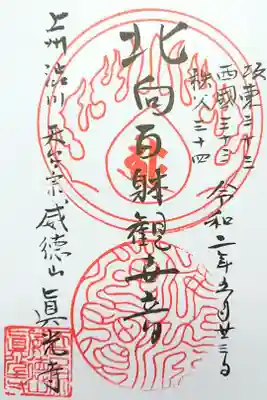 坂東三十三
西國三十三
秩父三十四
令和二年五月廿三日
北向百躰觀世音
上州渋川 天台宗 威德山 眞光寺